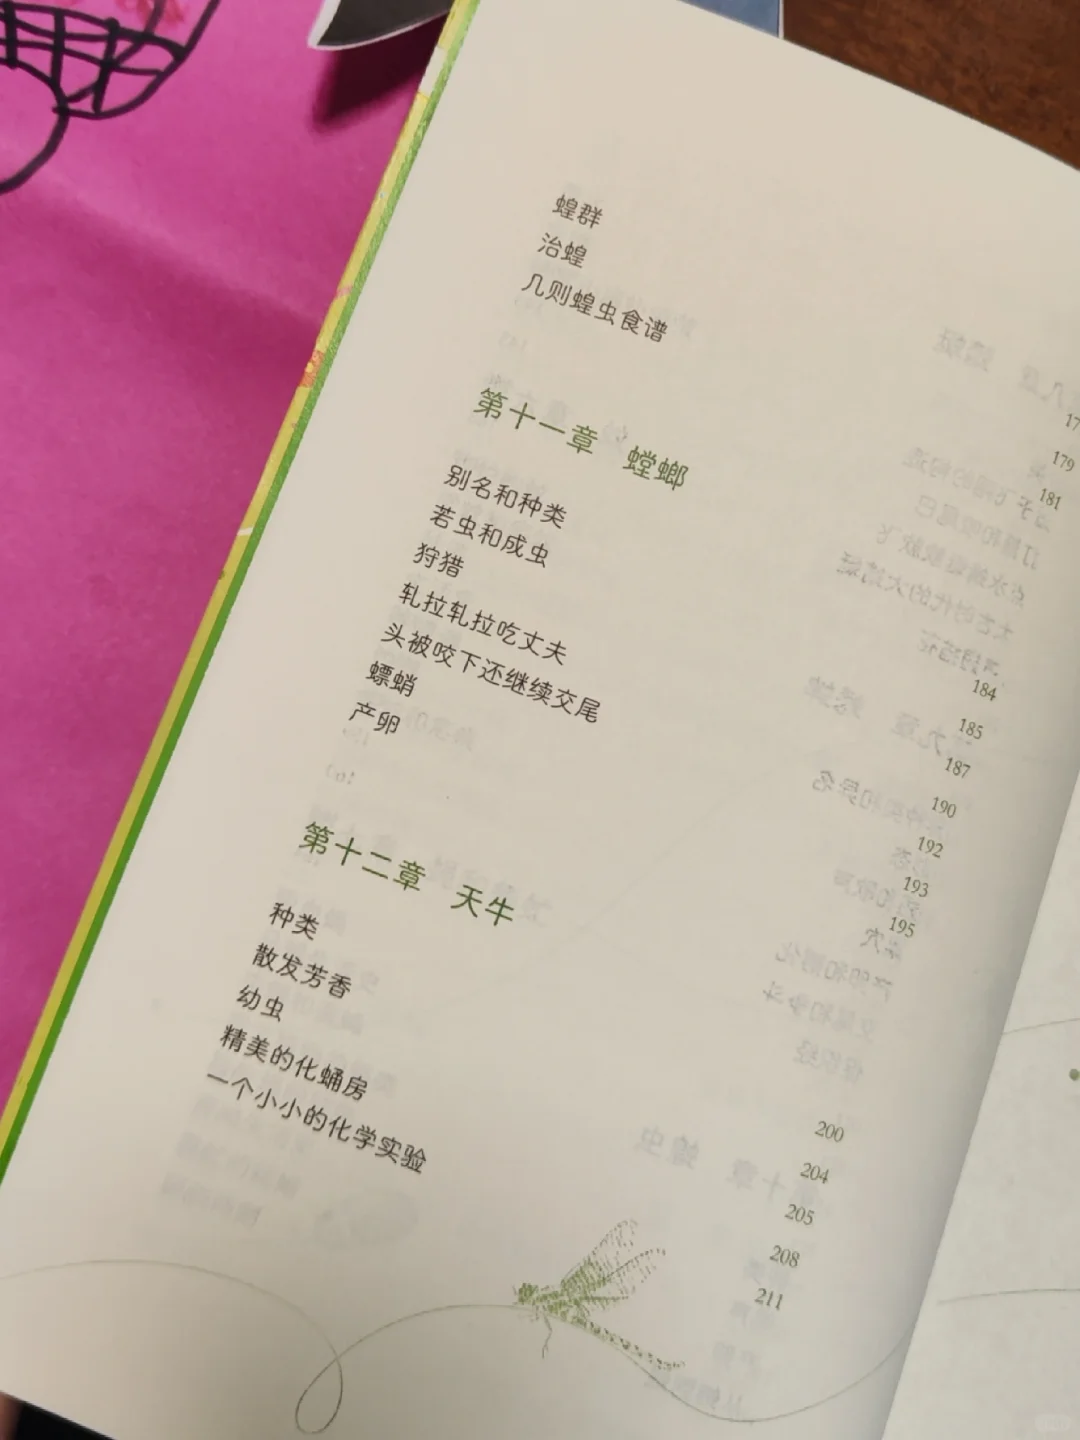 蝗群
治蝗 179
几则蝗虫食谱 181
第十一章 螳螂
别名和种类 184
若虫和成虫 185
狩猎 187
轧拉轧拉吃丈夫 190
头被咬下还继续交尾 192
螵蛸 193
产卵 195
第十二章 天牛
种类 200
散发芳香 204
幼虫 205
精美的化蛹房 208
一个小小的化学实验 211